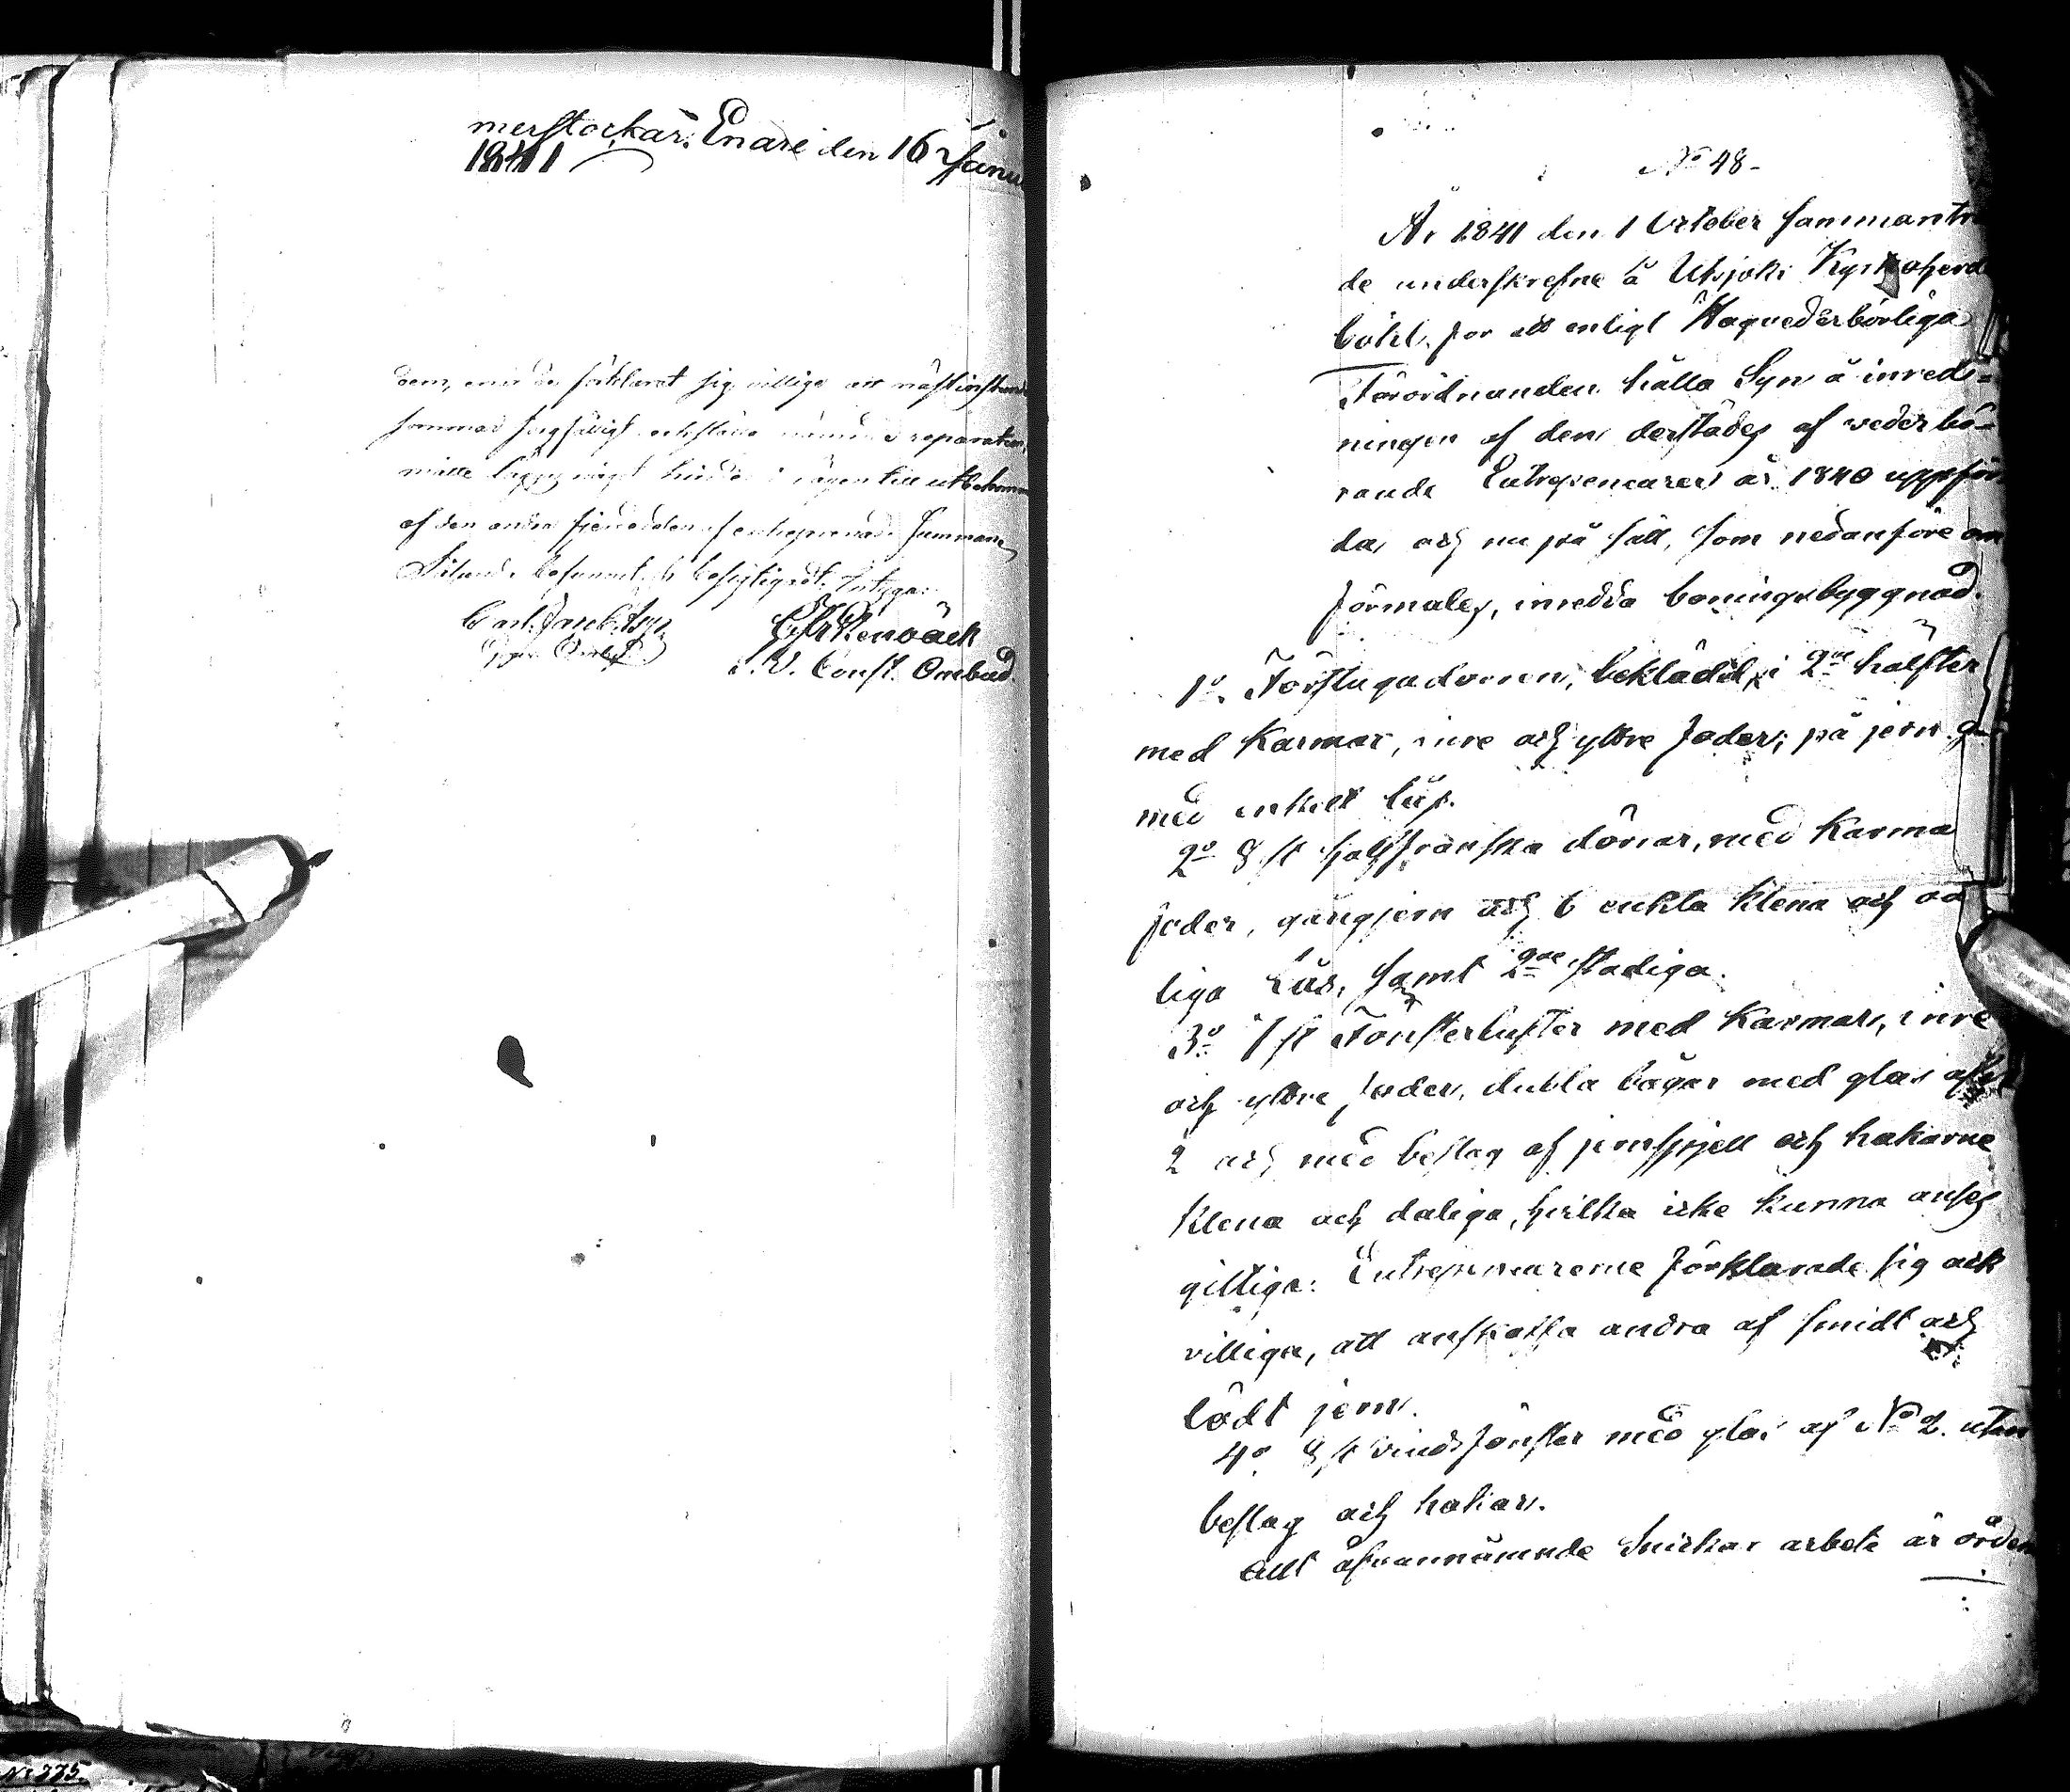 merstockar. Enare den 16 Janu
1841
dem, men de förklarat sig villiga att nästinstund
sommar sorgfälligt verkställa nämnde reparation,
måtte läggas något hinder i vägen till utbekomm
af den andra fjerdedelen af entreprenad Summan
Sålunda befunnet och besigtigadt. Intyga:
Carl Jacob
i. V. Const. Ombud.
No 48-
År 1841 den 1 October sammanträ
de underskrefne å Utsjoki Kyrkoherde
bohl, för att enligt Högvederbörliga
Förordnanden hålla Syn å inred-
ningen af den derstädes af vederbö-
rande Entreprenearer år 1840 uppför
da, och nu på sätt, som nedanföre om
förmäles, inredda boningsbyggnad.
1o. Förstugudörren, beklädd, i 2ne hälfter
med Karmar, inre och yttre foder, på jern g
med enkelt lås.
2o 8 st halffranska dörrar, med Karma
foder, gångjern och 6 enkla klena och od
liga Lås, samt 2ne stadiga.
3o 7 st Fönsterlufter med Karmar, inre
och yttre foder, dubla bågar med glas af
2 och med beslag af jernspjell och hakarne
klena och daliga, hvilka icke kunna anses
giltiga: Entreprenearerne förklarade sig ock
villiga, att anskaffa andra af smidt och
lödt jern.
4o 8 st vindsfönster med glas af No 2. utan
beslag och hakar.
Allt ofvannämnde Snickar arbete är orden
No 225.